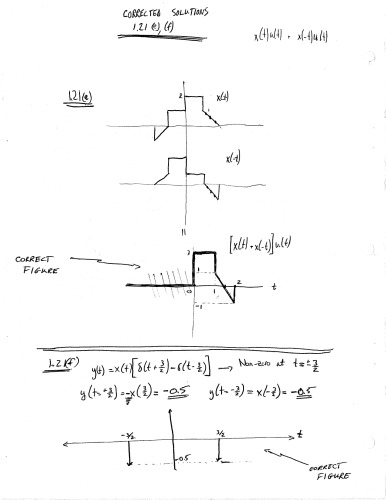 CORRECTED SOLUTIONS
1.21 (e), (f)
x(t)u(t) + x(-t)u(t)
1.21(e)
2
x(t)
x(-t)
=
[x(t) + x(-t)]u(t)
CORRECT
FIGURE
2
1
0
1
2
t
-1
1.21(f)
y(t) = x(t)[δ(t + 3/2) - δ(t - 3/2)] → Non-zero at t = ± 3/2
y(t = +3/2) = -x(3/2) = -0.5 y(t = -3/2) = x(-3/2) = -0.5
-3/2
3/2
t
-0.5
CORRECT
FIGURE